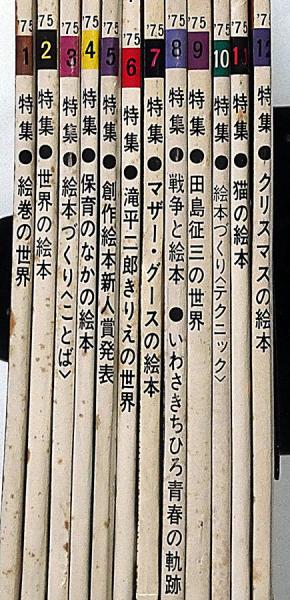 '75 1 特集●絵巻の世界
'75 2 特集●世界の絵本
'75 3 特集●絵本づくり〈ことば〉
'75 4 特集●保育のなかの絵本
'75 5 特集●創作絵本新人賞発表
'75 6 特集●滝平二郎きりえの世界
'75 7 特集●マザー・グースの絵本
'75 8 特集●戦争と絵本●いわさきちひろ青春の軌跡
'75 9 特集●田島征三の世界
'75 10 特集●絵本づくり〈テクニック〉
'75 11 特集●猫の絵本
'75 12 特集●クリスマスの絵本